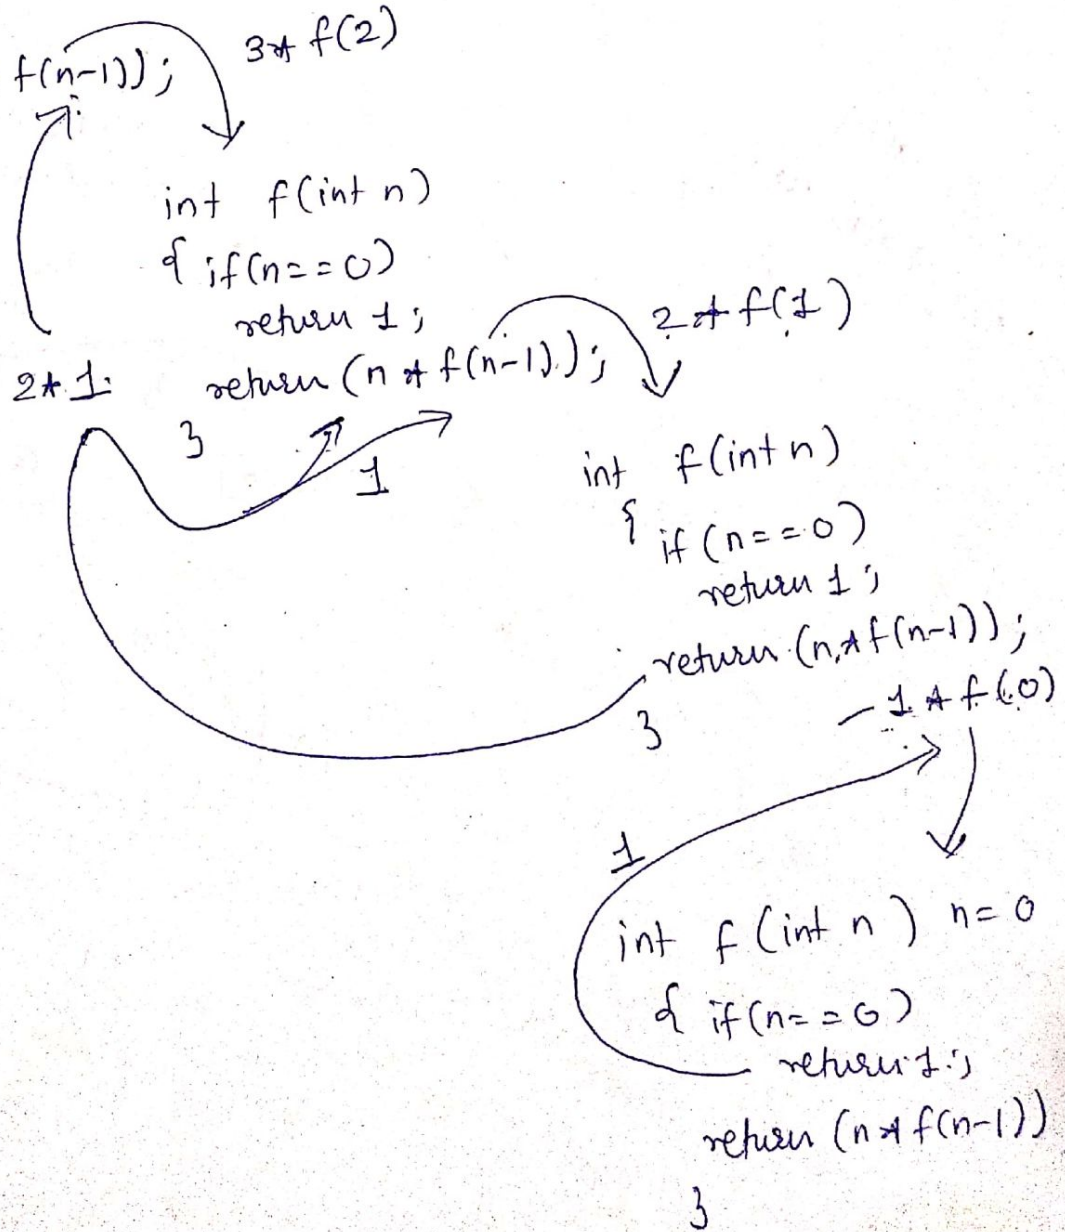 f(n-1));
3* f(2)
int f(int n)
{ if(n==0)
return 1;
return (n * f(n-1));
}
2*1
1
2 * f(1)
int f(int n)
{
if (n==0)
return 1;
return (n * f(n-1));
}
- 1 * f(0)
1
int f(int n) n=0
{ if(n==0)
return 1;
return (n * f(n-1))
}